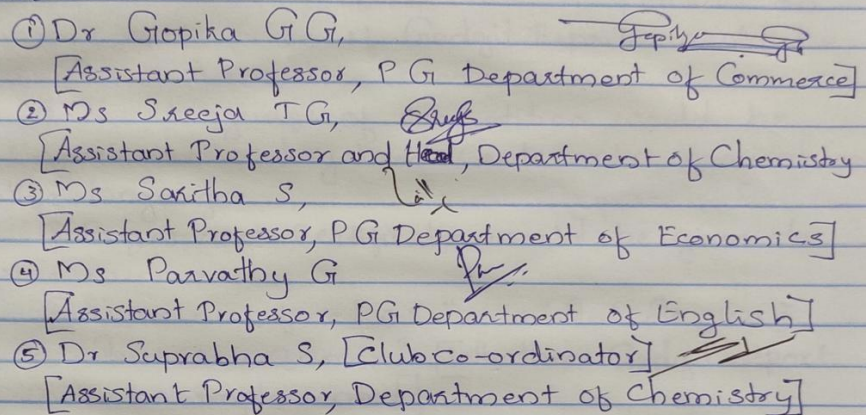 ① Dr Gopika G G,
[Assistant Professor, P G Department of Commerce]
② Ms Sreeja T G,
[Assistant Professor and Head, Department of Chemistry
③ Ms Saritha S,
[Assistant Professor, P G Department of Economics]
④ Ms Parvathy G
[Assistant Professor, PG Department of English]
⑤ Dr Suprabha S, [Club co-ordinator]
[Assistant Professor, Department of Chemistry]